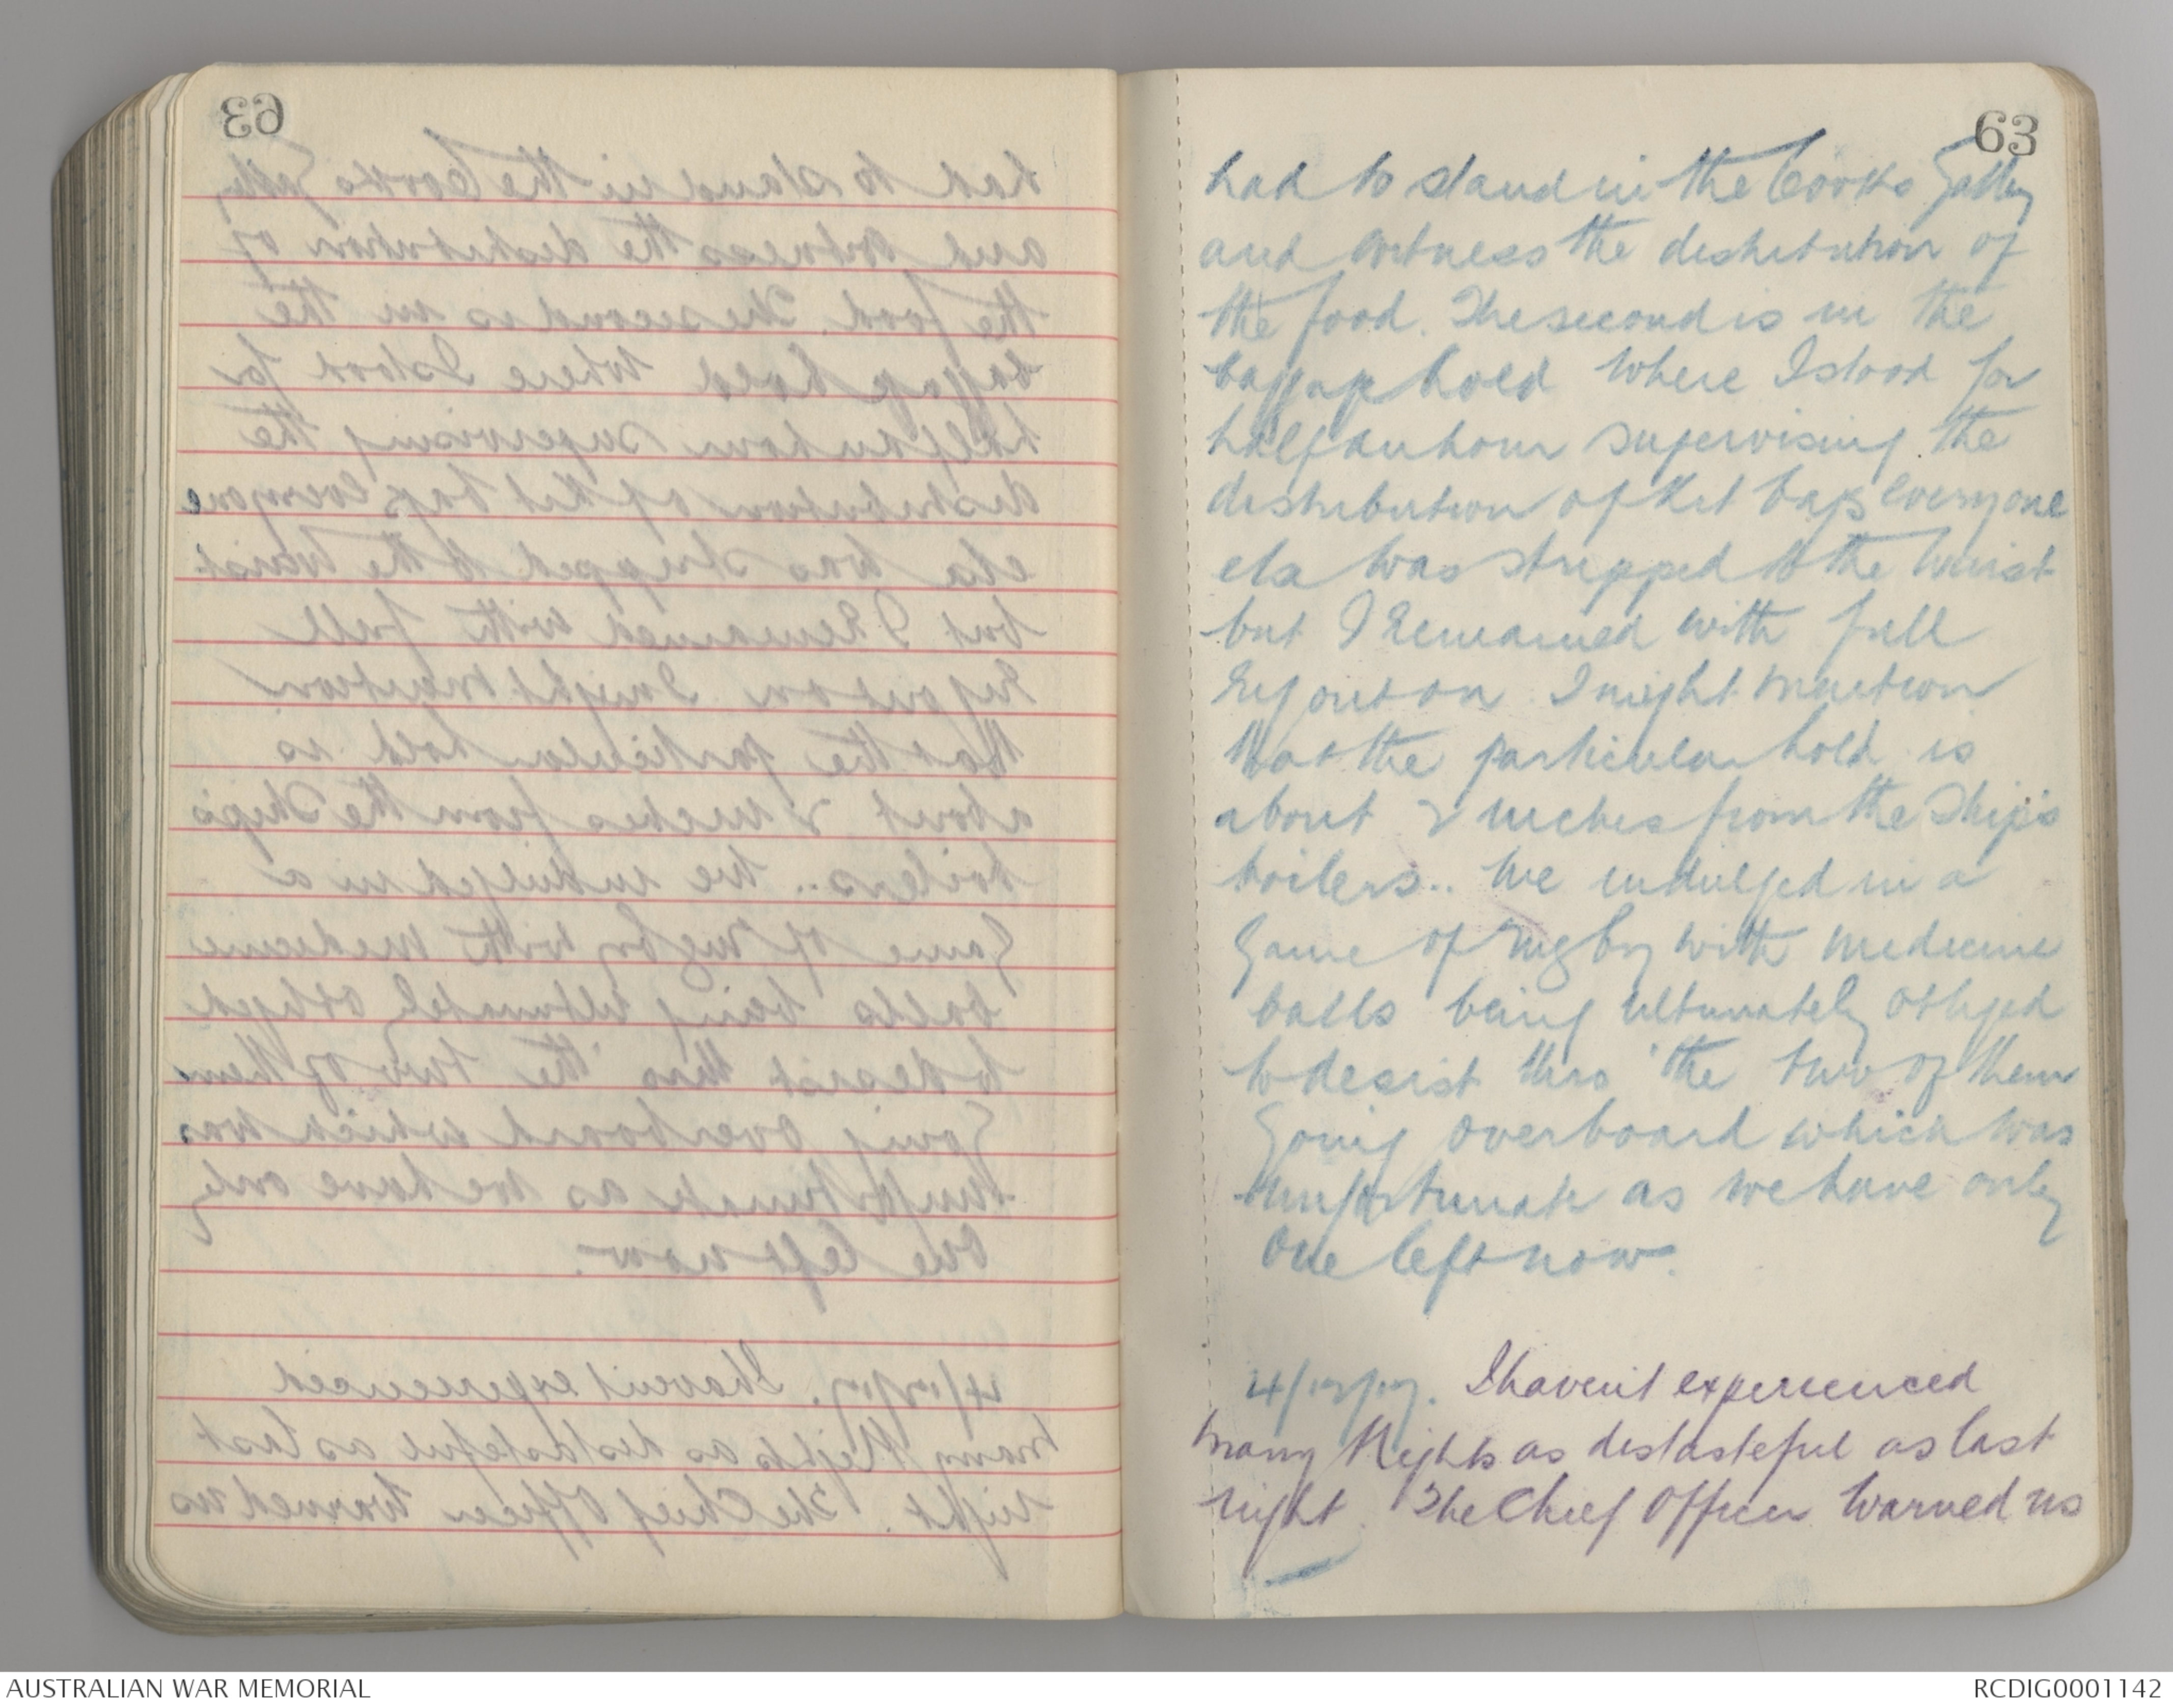 63
had to stand in the Cooks Galley
and witness the distribution of
the food. The second is in the
baggage hold where I stood for
half an hour supervising the
distribution of Kit bags everyone
else was stripped to the waist
but I remained with full
rig out on I might mention
that the particular hold is
about 2 inches from the Ship's
boilers.. We indulged in a
Game of rugby with medicine
balls being ultimately obliged
to desist thro' the two of them
Going overboard which was
unfortunate as we have only
One left now.
4/12/17. I haven't experienced
many Nights as distasteful as last
night. The Chief Officer warned us
AUSTRALIAN WAR MEMORIAL
RCDIG0001142